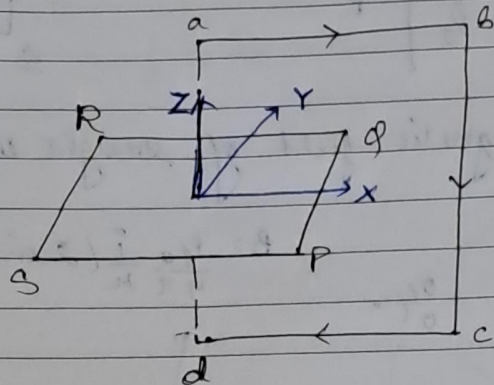 a
b
Z
Y
R
Q
X
S
P
c
d